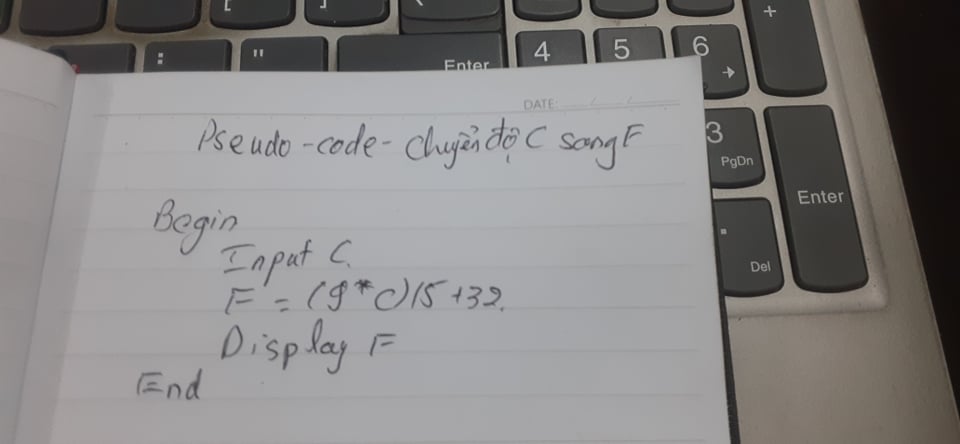 [
]
:
"
Enter
4
5
6
+
3
PgDn
Enter
.
Del
DATE: / /
Pseudo-code-chuyển độ C sang F
Begin
Input C.
F = (9*C)/5+32.
Display F
End